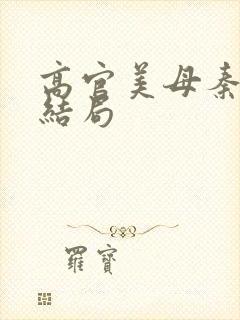 高官美母秦
結局
羅寶